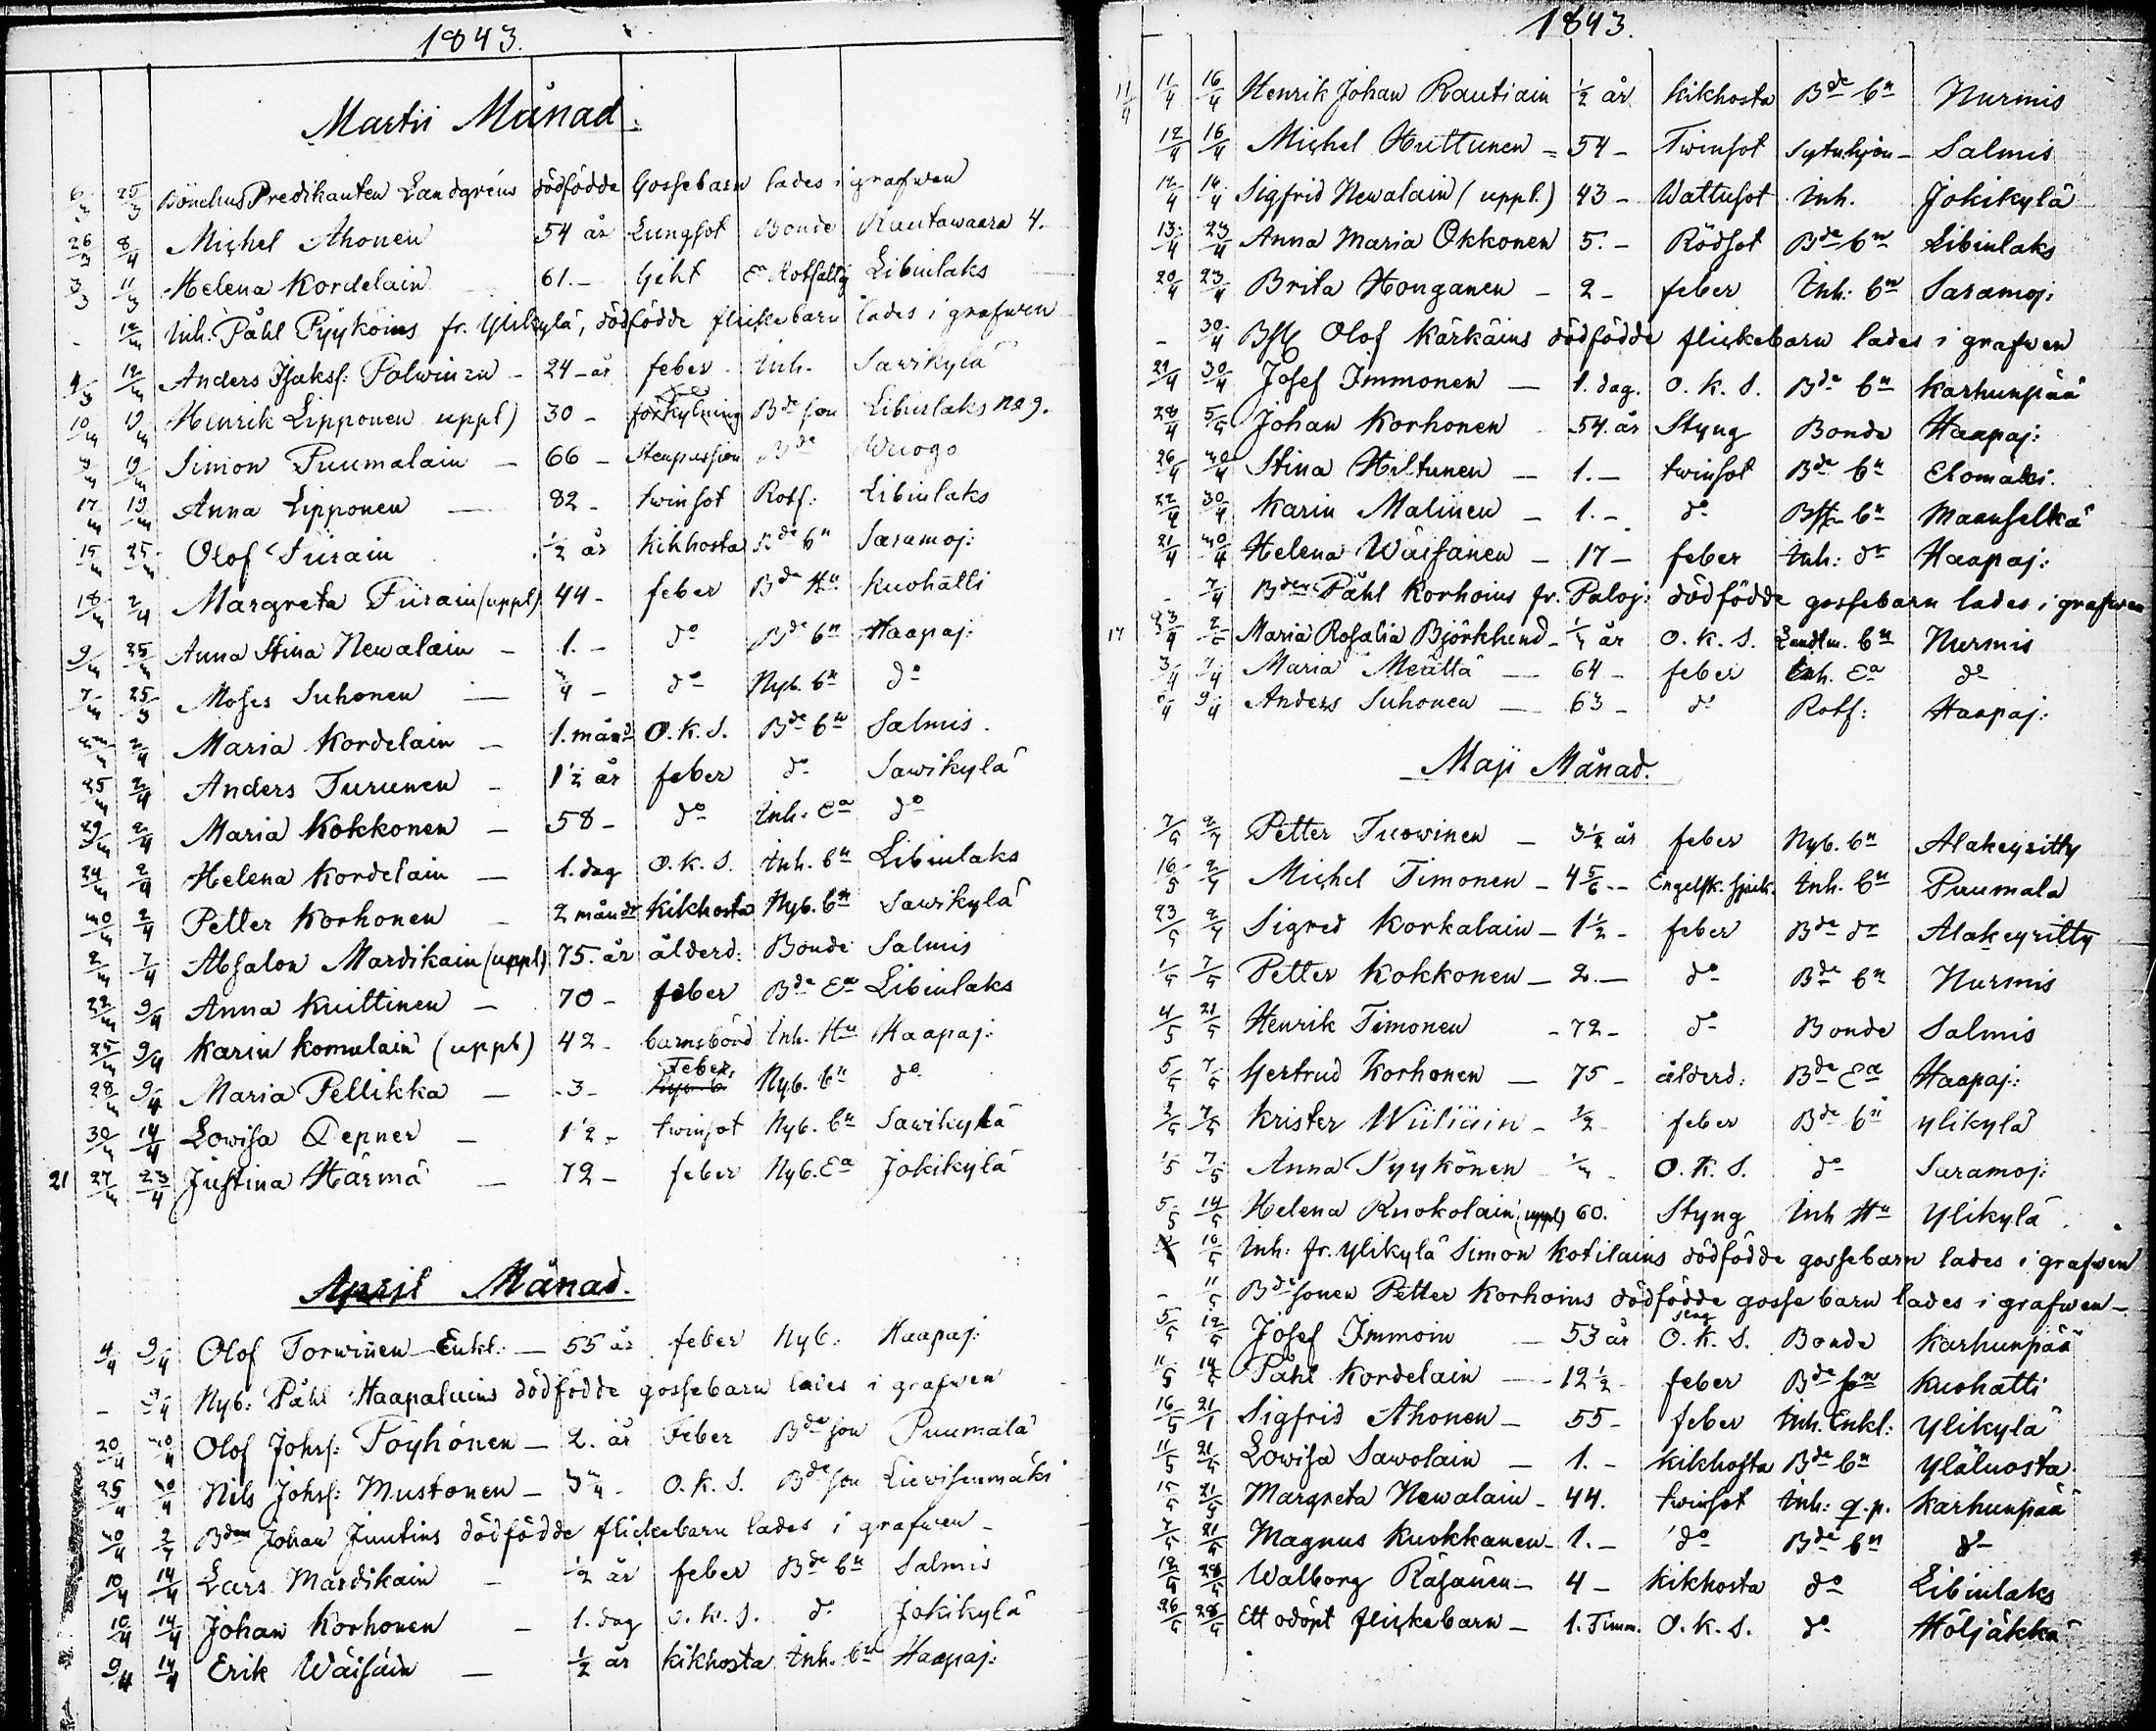 1843.
Martii Månad.
6/3 25/3 BönehusPredikanten Landgréns dödfödde Gossebarn lades i grafwen
26/3 8/4 Michel Ahonen 54 år Lungsot Bonde Rautawaara 4.
3/3 11/3 Helena Kordelain 61.- Gikt Ea Rotfattig Libinlaks
- 12/m Inh. Påhl Pyyköins fr. Ylikylä, dödfödde flickebarn lades i grafwen
4/3 12/m Anders Isaksf: Polwinen - 24-år feber Inh. Sawikylä
10/m 19/m Henrik Lipponen uppl) 30 - förkylning Bde son Libinlaks No 9.
9/m 19/m Simon Puumalain - 66 - Bde Wuogo
17/m 19/m Anna Lipponen - 82 - twinsot Rotf: Libinlaks
15/m 25/m Olof Piirain 1/2 år Kikhosta Bde bn Saramoj:
18/m 2/4 Margreta Piirain (uppl) 44 - feber Bde Hu Kuohatti
9/m 25/m Anna Stina Newalain - 1. - do Bde bn Haapaj:
7/m 25/3 Moses Suhonen - 3/4 - do Nyb. bn do
2/4 Maria Kordelain - 1. månd O.K.S. Bde bn Salmis.
25/m 2/4 Anders Turunen - 1 1/2 år feber do Sawikylä
29/m 2/4 Maria Kokkonen - 58 - do Inh. Ea do
24/m 2/4 Helena Kordelain - 1. dag O.K.S. Inh. bn Libinlaks
30/m 2/4 Petter Korhonen - 2 måndr Kikhosta Nyb. bn Sawikylä
2/m 7/4 Absalon Mardikain (uppl) 75. år ålderd: Bonde Salmis
22/m 9/4 Anna Kuittinen - 70 - feber Bde Ea Libinlaks
25/m 9/4 Karin Komulain (uppl) 42 - barnsbörd Inh. Hu Haapaj:
28/m 9/4 Maria Pellikka - 3 - Feber, Nyb. bn do
30/m 14/4 Lowisa Depner - 1 1/2 - twinsot Nyb. bn Sawikylä
21 27/m 23/4 Justina Härmä - 72 - feber Nyb. Ea Jokikylä
April Månad.
4/4 9/4 Olof Torwinen Enkl: - 55 år feber Nyb: Haapaj:
- 9/4 Nyb: Påhl Haapaluins dödfödde gossebarn lades i grafwen
20/4 30/4 Olof Johsf: Pöyhönen - 2. år Feber Bde son Puumala
25/4 30/4 Nils Johsf: Mustonen - 3/4 - O.K.S. Bde son Liewisenmäki
30/4 2/4 Bden Johan Juutins dödfödde flickebarn lades i grafwen -
10/4 14/4 Lars Mardikain - 1/2 år feber Bde bn Salmis
10/4 14/4 Johan Korhonen - 1. dag O.K.S. do Jokikylä
9/4 14/4 Erik Wäisäin - 1/2 år Kikhosta Inh. bn Haapaj:
1843.
11/4 11/4 16/4 Henrik Johan Rautiain 1/2 år Kikhosta Bde bn Nurmis
12/4 16/4 Michel Huttunen - 54 - Twinsot Sytnhjon - Salmis
12/4 16/4 Sigfrid Newalain (uppl.) 43 - Wattusot Inh. Jokikylä
13/4 23/4 Anna Maria Okkonen 5. - Rödsot Bde bn Libinlaks
20/4 23/4 Brita Honganen - 2 - feber Inh: bn Saramoj:
- 30/4 Olof Kärkäins dödfödde flickebarn lades i grafwen
29/4 30/4 Josef Immonen - 1. dag. O.K.S. Bde bn Karhunpää
28/4 5/5 Johan Korhonen 54. år Styng Bonde Haapaj:
26/4 30/4 Stina Hiltunen - 1. - twinsot Bde bn Elomäki.
22/4 30/4 Karin Malinen - 1. - do bn Maanselkä
21/4 30/4 Helena Wäisänen - 17 - feber Inh: dr Haapaj:
- 7/4 Bden Påhl Korhoins fr. Paloj: dödfödde gossebarn lades i grafwen
17 23/4 2/5 Maria Rosalia Björklund - 1/4 år O.K.S. Landtm. bn Nurmis
3/4 7/4 Maria Määttä - 64 - feber Inh. Ea do
6/4 9/4 Anders Suhonen - 63 - do Rotf: Haapaj:
Maji Månad.
7/5 Petter Tuowinen - 3 1/2 år feber Nyb. bn Alakeyritty
16/5 Michel Timonen - 4 5/6 - Engelsk. sjuk. Inh. bn Puumala
23/5 Sigred Korkalain - 1 1/2 - feber Bde dr Alakeyritty
1/5 7/5 Petter Kokkonen - 2. - do Bde bn Nurmis
4/5 21/5 Henrik Timonen - 72 - do Bonde Salmis
5/5 7/5 Gertrud Korhonen - 75 - ålderd: Bde Ea Haapaj:
2/5 7/5 Krister Wiiliäin - 1/2 feber Bde bn Ylikylä
1/5 7/5 Anna Pyykönen O.K.S. do Saramoj:
5/5 14/5 Helena Ruokolain (uppl) 60. Styng Inh Hu Ylikylä
10/5 Inh: fr. Ylikylä Simon Kotilains dödfödde gossebarn lades i grafwen
- 11/5 Bdesonen Petter Korhoins dödfödde gossebarn lades i grafwen -
5/5 12/5 Josef Immoin - 53 år O.K.S. Bonde Karhunpää
11/5 14/5 Påhl Kordelain - 12 1/2 - feber Bde son Kuohatti
16/5 21/5 Sigfrid Ahonen - 55 - feber Inh. Enkl: Ylikylä
11/5 21/5 Lowisa Sawolain - 1. - Kikhosta Bde bn Yläluosta
15/5 21/5 Margreta Newalain - 44. twinsot Inh: q.p. Karhunpää
7/5 21/5 Magnus Kuokkanen - 1. - do Bde bn do
19/5 28/5 Walborg Räsänen - 4 - Kikhosta do Libinlaks
26/5 28/5 Ett odöpt flickebarn - 1. Timm. O.K.S. do Höljäkkä